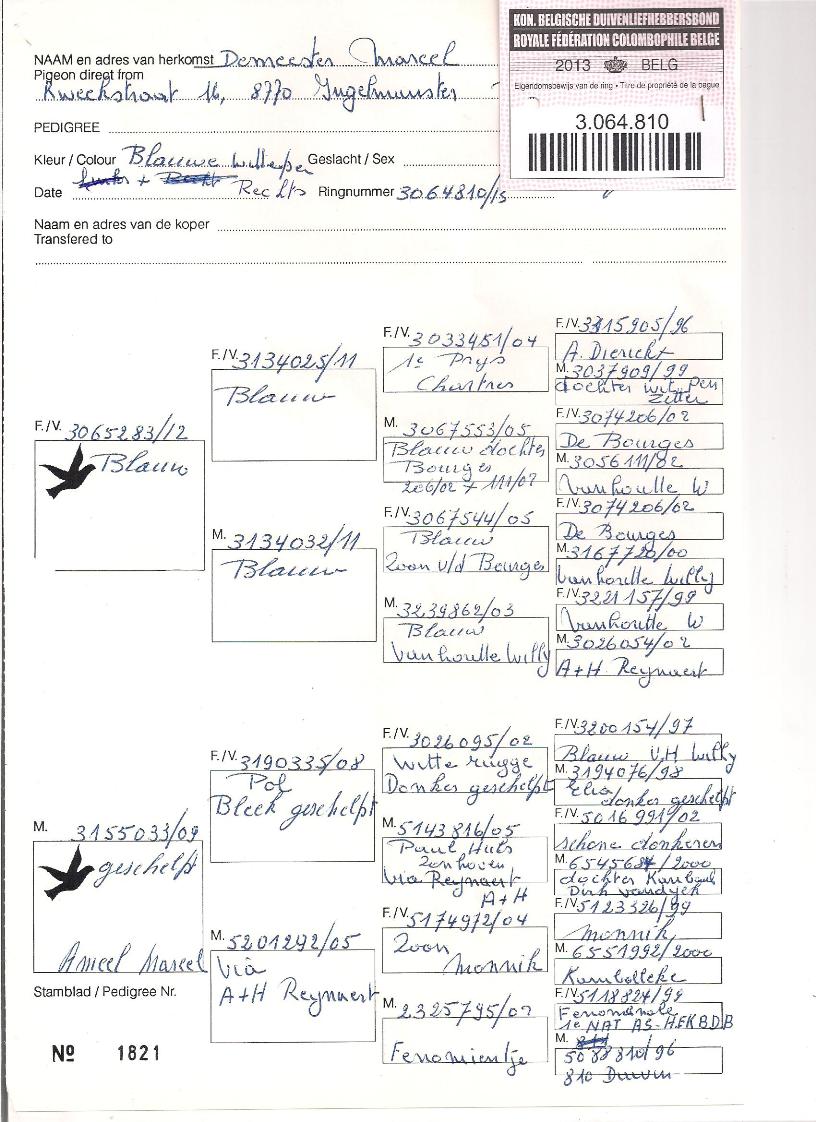 KON. BELGISCHE DUIVENLIEFHEBBERSBOND
ROYALE FÉDÉRATION COLOMBOPHILE BELGE
2013 BELG
Eigendomsbewijs van de ring - Titre de propriété de la bague
3.064.810
NAAM en adres van herkomst Demeester Marcel
Pigeon direct from
Kweekstraat 16, 8770 Ingelmunster
PEDIGREE
Kleur / Colour Blauwe witteper Geslacht / Sex
Date + Rechts Ringnummer 3064810/13
Naam en adres van de koper
Transfered to
F./V. 3065283/12
Blauw
F./V. 3134025/11
Blauw
M. 3134032/11
Blauw
F./V. 3033451/04
1e Prys
Chartres
M. 3067553/05
Blauw dochter
Bourges
206/02 + 111/02
F./V. 3067544/05
Blauw
Zoon v/d Bourges
M. 3239862/03
Blauw
Vanhoutte Willy
F./V. 3415905/96
A. Dierickt
M. 3037909/99
dochter wit Pen
Zitter
F./V. 3074206/02
De Bourges
M. 3056111/02
Vanhoutte W
F./V. 3074206/02
De Bourges
M. 3167720/00
Vanhoutte Willy
F./V. 3221157/99
Vanhoutte W
M. 3026054/02
A+H Reynaert
M. 3155033/09
geschelpt
Ameel Marcel
F./V. 3190335/08
Pol
Bleek geschelpt
M. 5201292/05
Via
A+H Reynaert
F./V. 3026095/02
Witte rugge
Donker geschelpt
M. 5143816/05
Paul Huls
Zonhoven
Via Reynaert
A+H
F./V. 5174972/04
Zoon
Monnik
M. 2325795/02
Fenomientje
F./V. 3200154/97
Blauw V.H Willy
M. 3194076/98
donker geschelpt
F./V. 5016991/02
schone donkeren
M. 6545684/2000
dochter
Dirk vandyck
F./V. 5123326/99
Monnik
M. 6551992/2000
Kanbolleke
F./V. 5118824/99
1e NAT AS-H.F KBDB
M.
5088810/96
810
Stamblad / Pedigree Nr.
Nº 1821